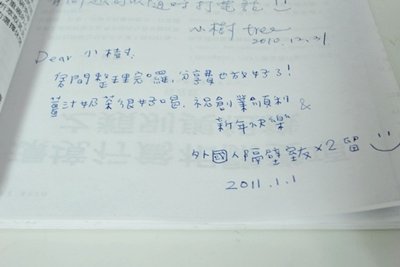 有問題可以隨時打電話
小樹 tree
2010.12.31
Dear 小樹:
房間整理完囉,分享費也放好了!
薑汁奶茶很好喝,祝創業順利 &
新年快樂
外國人隔壁室友×2 留
2011.1.1